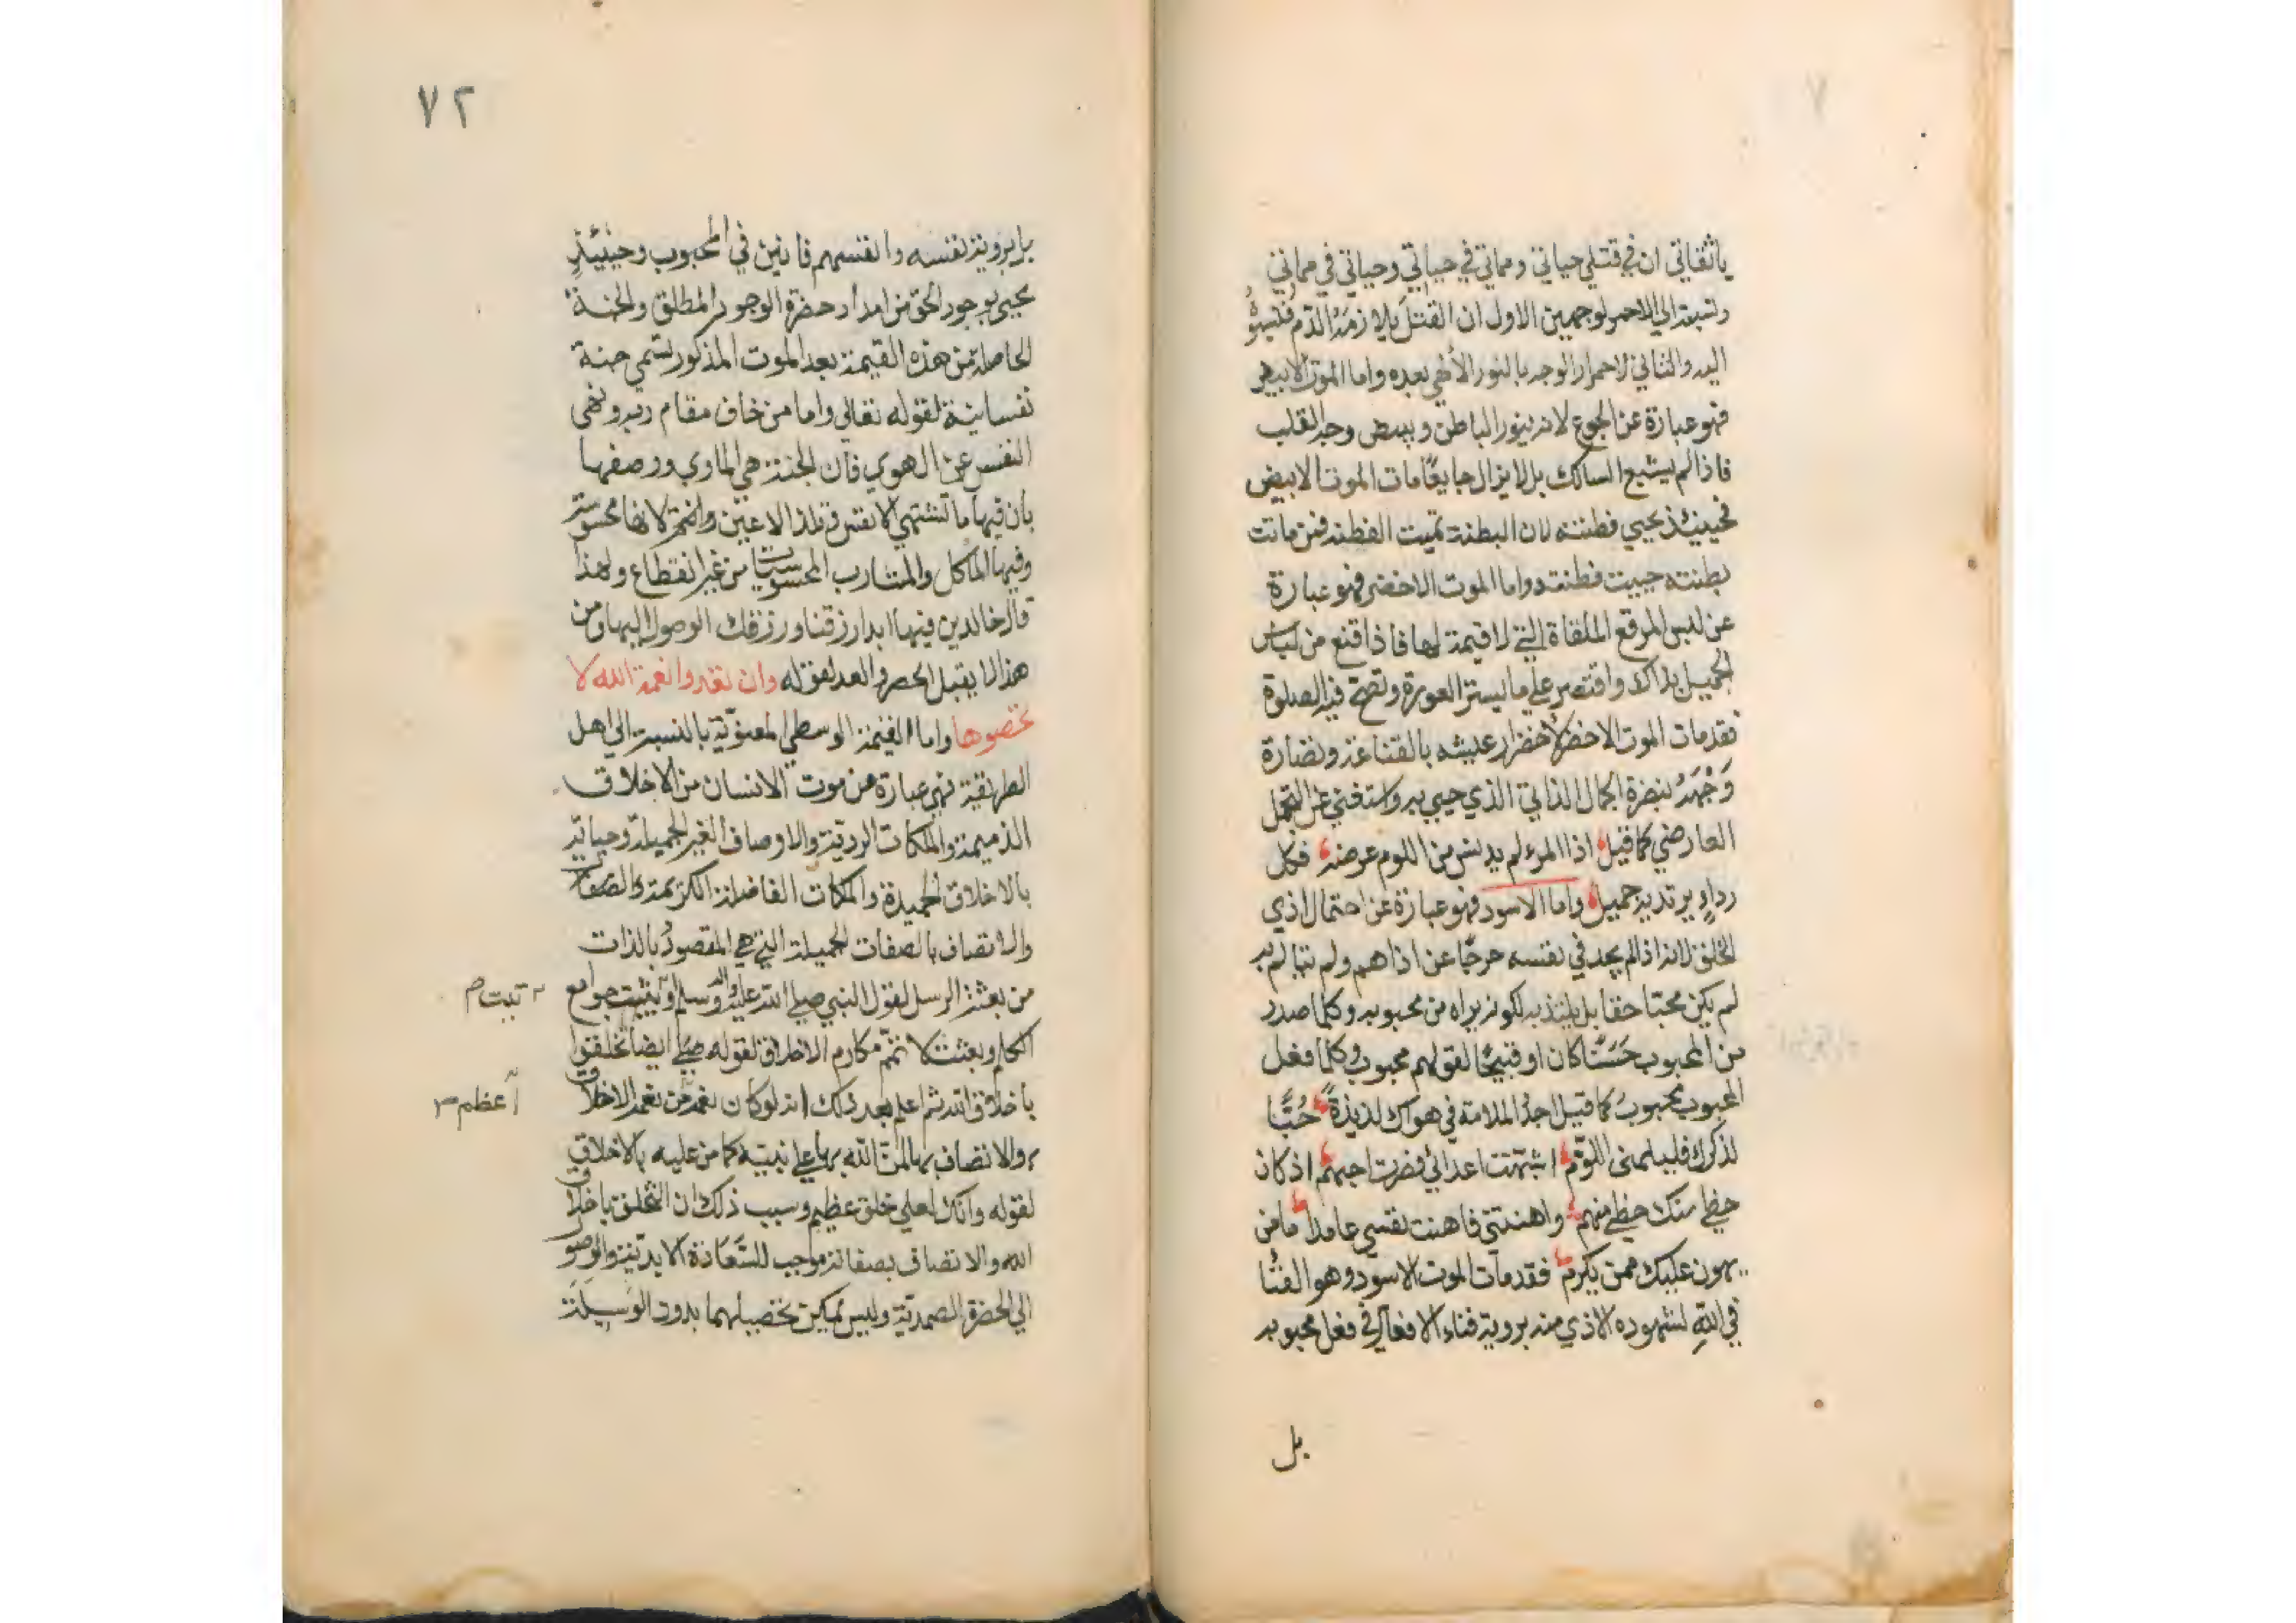 يا ثقاتي ان في قتلي حياتي ومماتي في حياتي وحياتي في مماتي
ونسبته الي الاحمر لوجهين الاول ان القتل يلازمه الدم فنسبوه
اليه والثاني لاحمرار الوجه بالنور الالهي بعده واما الموت الابيض
فهو عبارة عن الجوع لانه ينور الباطن ويبيض وجه القلب
فاذا لم يشبع السالك بل لا يزال جايعًا مات الموت الابيض
فحينئذ يحيي فطنته لان البطنة تميت الفطنه فمن ماتت
بطنته حييت فطنته واما الموت الاخضر فهو عبارة
عن لبس المرقع الملقاة التي لا قيمة لها فاذا قنع من لباس
الجميل بذالك واقتصر علي ما يستر العورة وتصح فيه الصلوة
فقد مات الموت الاخضر لاخضرار عيشه بالقناعة ونضارة
وَجْهَهُ بنضرة الجمال الذاتي الذي حيي به واستغني عن التجمل
العارضي كما قيل اذا المرء لم يدنس من اللوم عرضه فكل
رداءٍ يرتديه جميل واما الاسود فهو عبارة عن احتمال اذي
الخلق لانه اذا لم يجد في نفسه حرجًا عن اذاهم ولم يتالم به
لم يكن محبّا حقا بل يلتذ به لكونه يراه من محبوبه وكلما صدر
من المحبوب حَسَنًا كان او قبيحًا لقولهم محبوب وكلما فعل
المحبوب محبوبٌ كما قيل اجد الملامة في هواك لذيذةً حُبًّا
لذكرك فليلمني اللوّم اشبهت اعدائي فصرت احبهم اذ كان
حظي منك حظي منهم واهنتني فاهنت نفسي عامدا ما من
يهون عليك ممن يكرم فقد مات الموت الاسود وهو الفنا
في اللهِ لشهوده الاذي منه بروية فناء الافعال في فعل محبوبه
بل
٧٢
بل بروية نفسه وانفسهم فانين في المحبوب وحينئذِ
يحيي بوجود الحق من امداد حضرة الوجود المطلق والجنة
الحاصلة من هذه القيمة بعد الموت المذكور تسمي جنة
نفسانية لقوله تعالي واما من خاف مقام ربه ونهي
النفس عن الهوي فان الجنة هي الماوي ووصفها
بان فيها ما تشتهي الانفس وتلذ الاعين لانها محسوسة
وفيها الماكل والمشارب المحسوسات من غير انقطاع ولهذا
قال خالدين فيها ابدا رزقنا ورزقك الوصول اليها ومن
هذا لا يقبل الحصر والعد لقوله وان تعدوا نعمة الله لا
تحصوها واما القيمة الوسطي المعنوّية بالنسبة الي اهل
الطريقة فهي عبارة عن موت الانسان من الاخلاق
الذميمة والملكات الرديّة والاوصاف الغير الجميلة وحياته
بالاخلاق الحميدة والملكات الفاضلة الكريمة والصفات
والاتصاف بالصفات الجميلة التي هي المقصودُ بالذات
من بعثة الرسل لقول النبي صلي الله عليه واله وسلم اوتيت جوامع
الكلم وبعثت لاتمّم مكارم الاخلاق لقوله صلي ايضا تخلقوا
باخلاق الله ثم اعلم بعد ذلك انه لو كان نعمة من نعمة الاخلاق
والاتصاف بها لمنّ الله بها علي نبيّه كما من عليه بالاخلاق
لقوله وانّك لعلي خلق عظيم وسبب ذلك ان التخلق باخلاق
الله والاتصاف بصفاته موجب للسّعادة الابديّة والوصول
الي الحضرة الصمديّة وليس يمكن تحصيلهما بدون الوَسيلة
اعظم